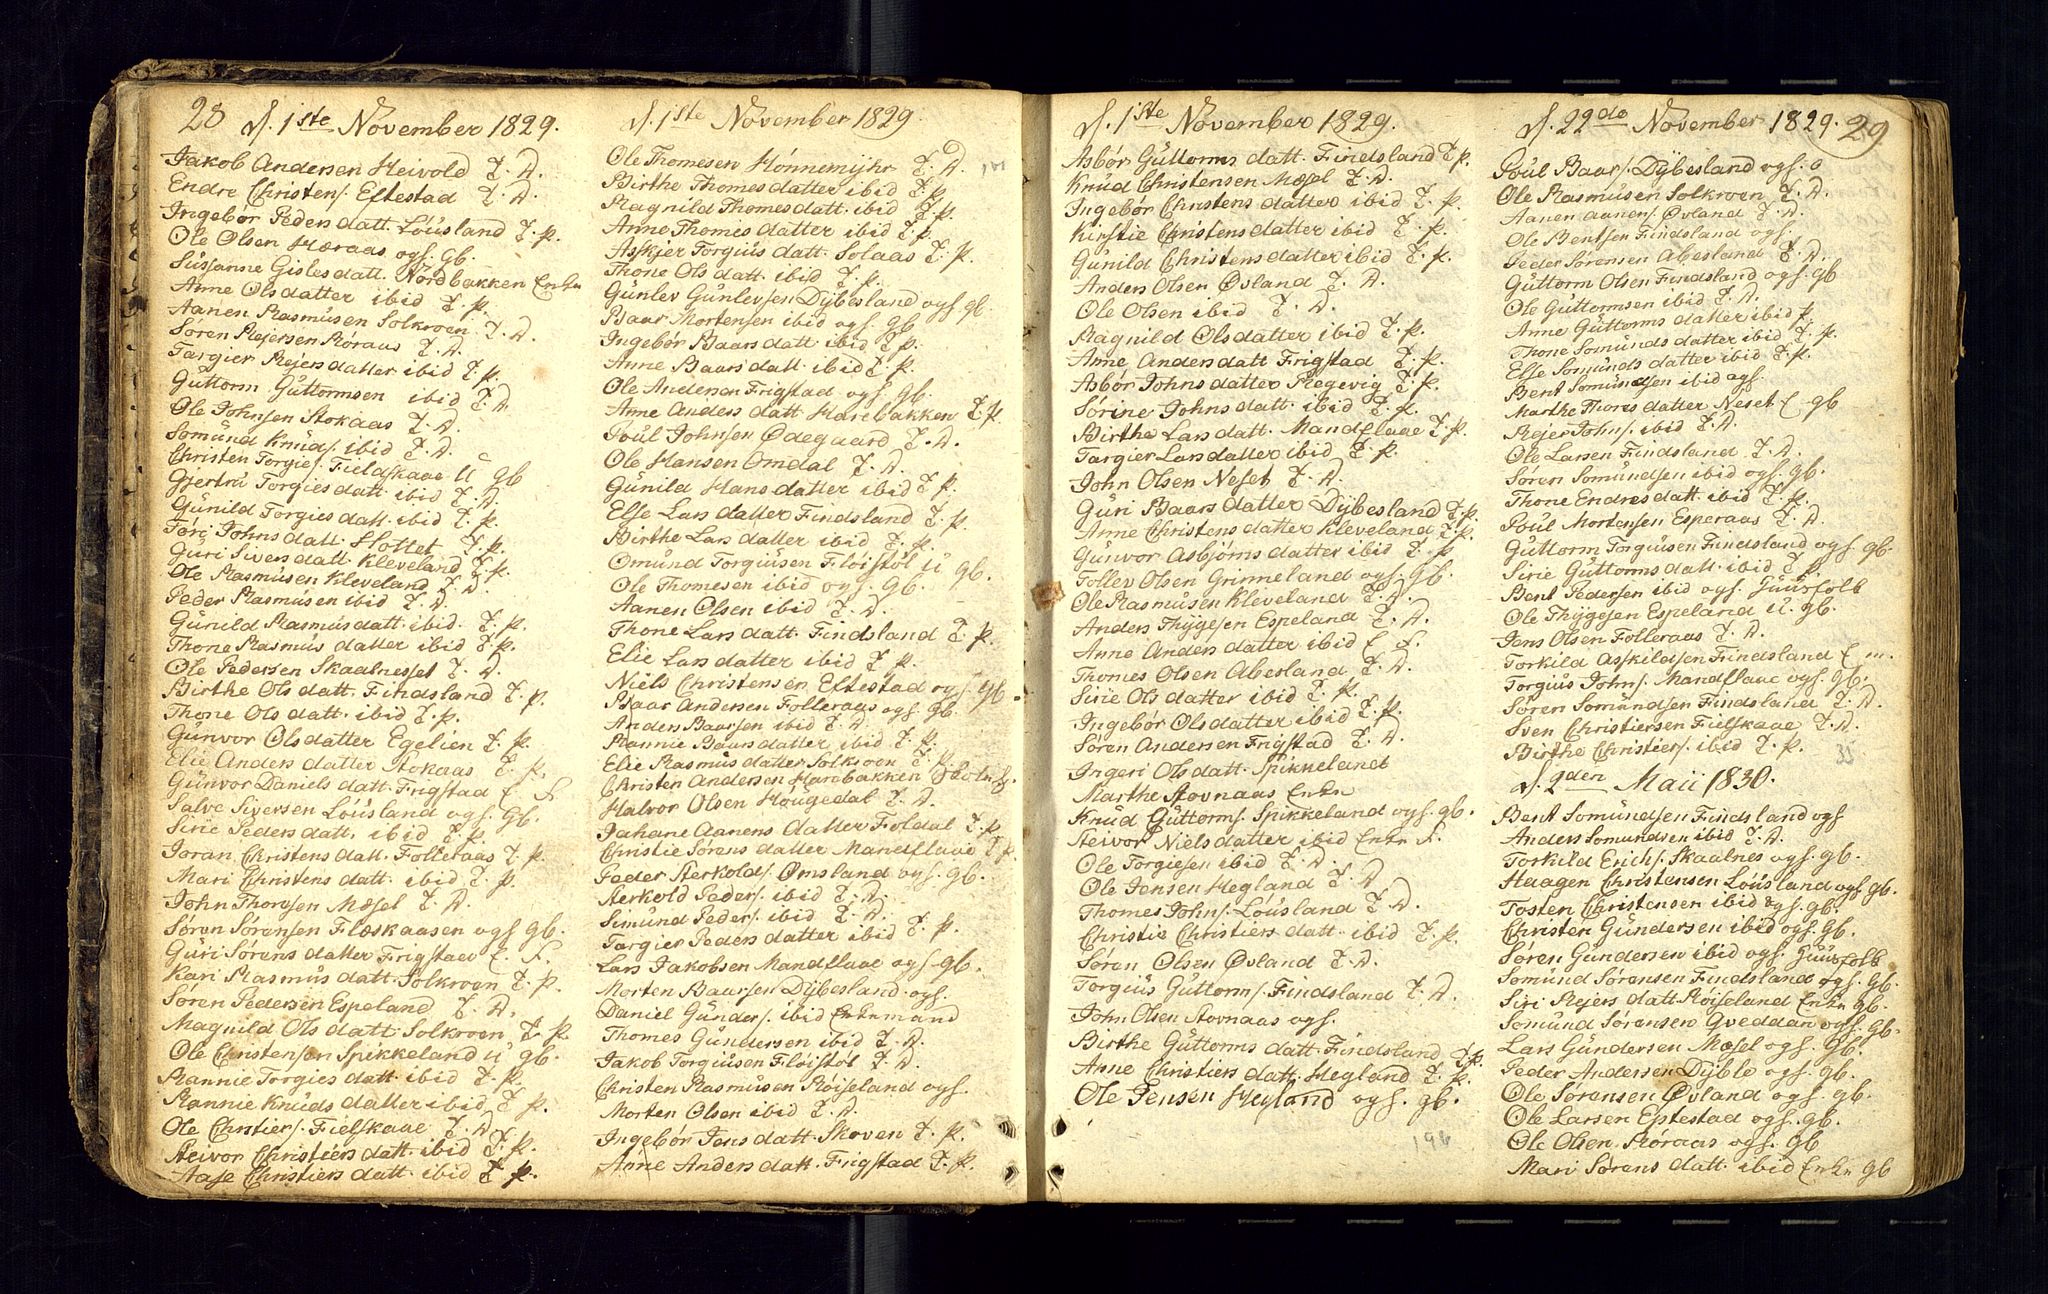 28
d. 1ste November 1829.
Jakob Andersen Heivold T. D.
Endre Christens. Eftestad T. D.
Ingebor Peders datt. Løusland T. p.
Ole Olsen Høraas ogs. gb.
Sussanne Gislesdatt. Nordbakken Enke
Anne Olsdatter ibid T. p.
Aanen Rasmusen Solkroen T. D.
Søren Rejersen Røraas T. D.
Targier Rejersdatter ibid T. p.
Guttorm Guttormsen ibid T. D.
Ole Johnsen Stokaas T. D.
Somund Knuds. ibid T. D.
Christen Torgies. Fielskaae U gb
Gjertru Torgiesdatt. ibid T. p.
Gunild Torgiesdatt. ibid T. p.
Tøri Johns datt. Slottet T. p.
Guri Sivers datt. Kleveland T. p.
Ole Rasmusen Kleveland T. D.
Peder Rasmusen ibid T. D.
Gunild Rasmusdatt. ibid. T. p.
Thone Rasmus datter ibid T. p.
Ole Pedersen Skaalnesset T. D.
Birthe Ols datt. Findsland T. p.
Thone Ols datt. ibid T. p.
Gunvor Olsdatter Egelien T. p.
Elie Anders datter Stokaas T. p.
Gunvor Daniels datt. Frigstad E. F.
Salve Siversen Løusland ogs. gb.
Sirie Peders datt. ibid T. p.
Joran Christens datt. Folleraas T. p.
Mari Christens datt. ibid T. p.
John Thoresen Mæsel T. D.
Søren Sørensen Flæskaasen ogs gb.
Guri Sørens datter Frigstad E. F.
Kari Rasmus datt. Solkroen T. p.
Søren Pedersen Espeland T. D.
Magnild Ols datt. Solkroen T. p.
Ole Christensen Spikkeland U gb.
Rannie Torgies datt. ibid T. p.
Rannie Knuds datter ibid T. p.
Ole Christiers. Fielskaae T. D.
Steivor Christiers datt. ibid T. p.
Aase Christiers datt. ibid T. p.
d. 1ste November 1829.
Ole Thomesen Hønnemyhr T. D.
Birthe Thomesdatter ibid T. p.
Ragnild Thomesdatt. ibid T. p.
Anne Thomes datter ibid T. p.
Askjer Torgius datt. Solaas T. p.
Thone Ols datt. ibid T. p.
Gunlev Gunlevsen Dybesland ogs gb.
Baar Mortensen ibid ogs. gb
Ingebor Baars datt. ibid T. p.
Anne Baars datt. ibid T. p.
Ole Andersen Frigstad ogs. gb.
Anne Anders datt. Harebakken T. p.
Poul Johnsen Ødegaard T. D.
Ole Hansen Omdal T. D.
Gunild Hans datter ibid T. p.
Else Lars datter Findsland T. p.
Birthe Lars datter ibid T. p.
Omund Torgiusen Fløistøl U gb.
Ole Thomesen ibid ogs. gb.
Aanen Olsen ibid T. D.
Thone Lars datt. Findsland T. p.
Elie Lars datter ibid T. p.
Niels Christensen Eftestad ogs. gb
Baar Andersen Folleraas ogs. gb.
Anders Baarsen ibid T. D.
Rannie Baars datter ibid T. p.
Elie Rasmus datter Solkroen T. p.
Christen Andersen Harebakken
Halvor Olsen Hougedal T. D.
Jahane Aanens datter Foldal T. p.
Christie Sørens datter Mandflaae T. p.
Peder Sterkolds. Omsland ogs. gb.
Sterkold Peders. ibid T. D.
Simund Peders. ibid T. D.
Targier Peders datter ibid T. p.
Lars Jakobsen Mandflaae ogs. gb.
Morten Baarsen Dybesland ogs.
Daniel Gunders. ibid Enkemand
Thomes Gundersen ibid T. D.
Jakob Torgiusen Fløistøl T. D.
Christen Rasmusen Røiseland ogs.
Morten Olsen ibid T. D.
Ingebor Jens datt. Skoven T. p.
Anne Anders datt. Frigstad T. p.
d. 1ste November 1829.
Asbør Guttorms datt. Findsland T. p.
Knud Christensen Mæsel T. D.
Ingebor Christens datter ibid T. p.
Kirstie Christens datter ibid T. p.
Gunild Christens datter ibid T. p.
Anders Olsen Øvland T. D.
Ole Olsen ibid T. D.
Ragnild Olsdatter ibid T. p.
Anne Anders datt Frigstad T. p.
Asbør Johns datter Regevig T. p.
Sørine Johns datt. ibid T. p.
Birthe Lars datt. Mandflaae T. p.
Targier Lars datter ibid T. p.
John Olsen Neset T. D.
Guri Baars datter Dybesland T. p.
Anne Christens datter Kleveland T. p.
Gunvor Asbjørns datter ibid T. p.
Tollev Olsen Grimeland ogs. gb.
Ole Rasmusen Kleveland T. D.
Anders Thygesen Espeland T. D.
Anne Anders datter ibid E. F.
Thomes Olsen Abesland T. D.
Sirie Ols datter ibid T. p.
Ingebor Olsdatter ibid T. p.
Søren Andersen Frigstad T. D.
Ingeri Ols datt. Spikkeland
Marthe Stovnaas Enke
Knud Guttorms. Spikkeland ogs. gb.
Steivor Niels datter ibid Enke F.
Ole Torgiesen ibid T. D.
Ole Jensen Hegland T. D.
Thomes Johns. Løusland T. D.
Christie Christiers datt. ibid T. p.
Søren Olsen Øvland T. D.
Torgius Guttorms. Findsland T. D.
John Olsen Stovnaas ogs.
Birthe Guttorms datt. Findsland T. p.
Anne Christiers datt. Hegland T. p.
Ole Jensen Hegland ogs. gb.
196
d. 22do November 1829.
29
Poul Baars. Dybesland ogs.
Ole Rasmusen Solkroen T. D.
Aanen Aanens. Øvland T. D.
Ole Bentsen Findsland ogs.
Peder Sørensen Abesland T. D.
Guttorm Olsen Findsland ogs. gb
Ole Guttormsen ibid T. D.
Anne Guttorms datter ibid p.
Thone Somunds datter ibid T. p.
Else Somunds datter ibid T. p.
Bent Somundsen ibid ogs.
Marthe Thores datter Neset E gb
Rejer Johns. ibid T. D.
Ole Larsen Findsland T. D.
Søren Somundsen ibid ogs. gb.
Thone Endres datt. ibid T. p.
Poul Mortensen Esperaas T. D.
Guttorm Torgiusen Findsland ogs. gb.
Sirie Guttorms datt. ibid T. p.
Bent Pedersen ibid ogs. Huusfolk
Ole Thygesen Espeland U. gb.
Jens Olsen Folleraas T. D.
Torkild Askildsen Findsland E. m.
Torgius Johns. Mandflaae ogs. gb.
Søren Somundsen Findsland T. D.
Sven Christiersen Fielskaae T. D.
Birthe Christiers. ibid T. p.
d. 2den Maii 1830.
Bent Somundsen Findsland ogs
Anders Somundsen ibid T. D.
Torkild Erichs. Skaalnes ogs. gb.
Haagen Christensen Løusland ogs gb.
Tosten Christensen ibid ogs. gb.
Christen Gundersen ibid ogs. gb.
Søren Gundersen ibid ogs. Huusfolk
Somund Sørensen Findsland ogs. gb.
Siri Rejers datt Røiseland Enke gb.
Somund Sørensen Qveddan ogs. gb.
Lars Gundersen Mæsel ogs. gb.
Peder Andersen Dyblo ogs. gb.
Ole Sørensen Øvland ogs. gb.
Ole Larsen Eptestad ogs. gb.
Ole Olsen Røraas ogs. gb
Mari Sørens datt. ibid Enke gb